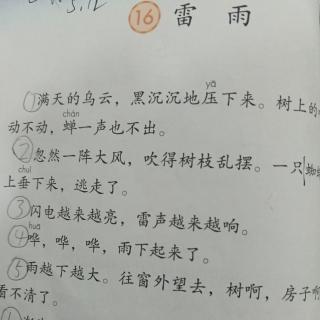 5.12
16 雷雨
①满天的乌云，黑沉沉地压下来。树上的
yā
chán
动不动，蝉一声也不出。
②忽然一阵大风，吹得树枝乱摆。一只蜘
chuí
上垂下来，逃走了。
③闪电越来越亮，雷声越来越响。
huā
④哗，哗，哗，雨下起来了。
⑤雨越下越大。往窗外望去，树啊，房子啊
看不清了。